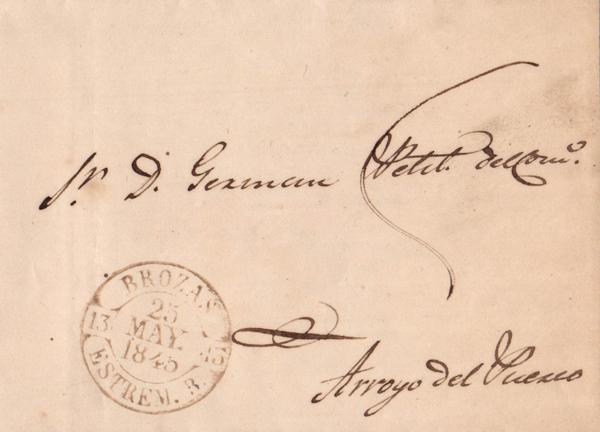 Sr. D. German Petit. del com.º
BROZAS
25
MAY.
1845
13 13
ESTREM. B.
Arroyo del Puerco